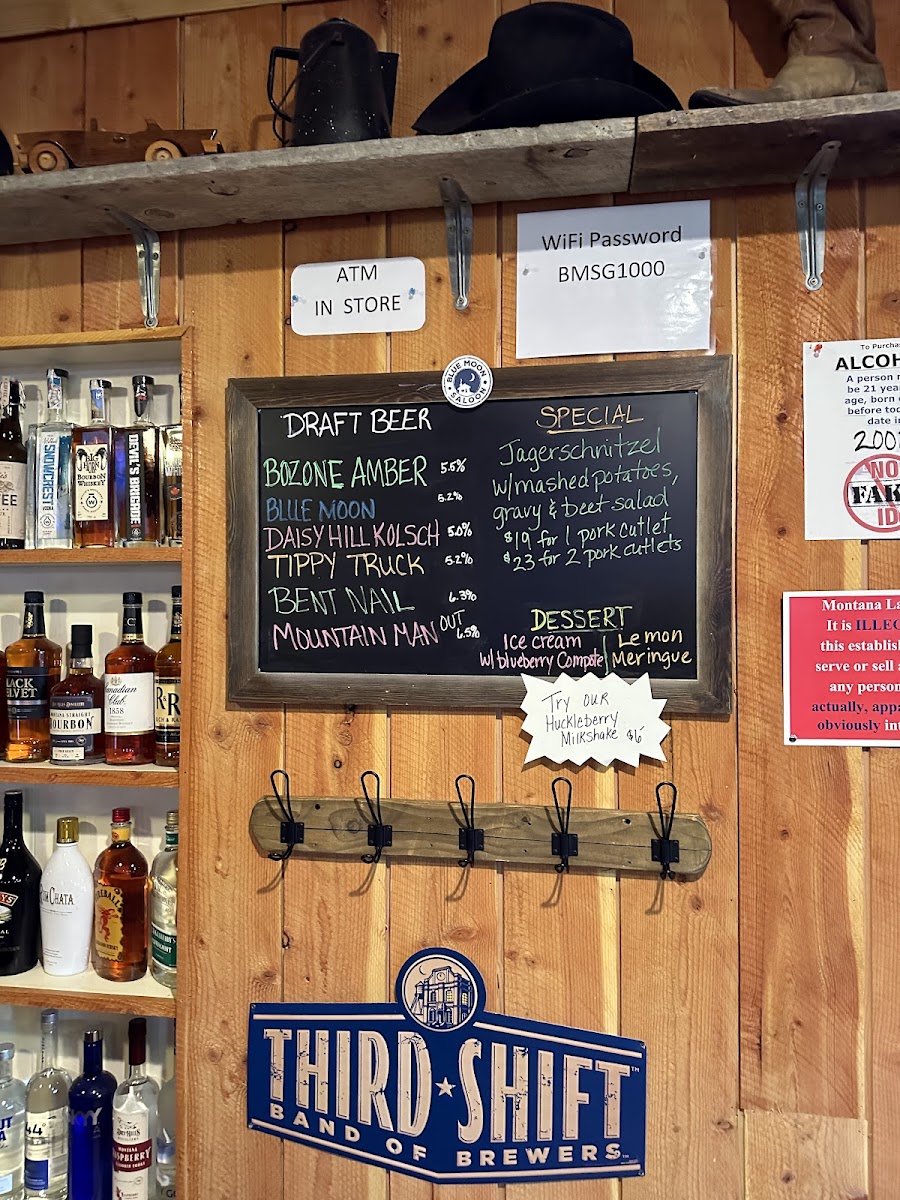 ATM
IN STORE
WiFi Password
BMSG1000
BLUE MOON
SALOON
DRAFT BEER
BOZONE AMBER 5.5%
BLUE MOON 5.2%
DAISY HILL KOLSCH 5.0%
TIPPY TRUCK 5.2%
BENT NAIL 6.3%
MOUNTAIN MAN OUT 6.5%
SPECIAL
Jagerschnitzel
w/mashed potatoes,
gravy & beet salad
$19 for 1 pork cutlet
$23 for 2 pork cutlets
DESSERT
Ice cream
w/blueberry Compote
Lemon
Meringue
Try our
Huckleberry
Milkshake $6
To Purchas
ALCOH
A person m
be 21 yea
age, born
before tod
date in
200
NO
FAK
ID
Montana La
It is ILLEG
this establis
serve or sell a
any person
actually, appa
obviously int
SNOWCREST
VODKA
BIG HORN
BOURBON
WHISKEY
DEVIL'S BRIGADE
BLACK
VELVET
BOURBON
Canadian
Club
1858
R&R
RUMCHATA
FIREBALL
THIRD SHIFT
BAND OF BREWERS